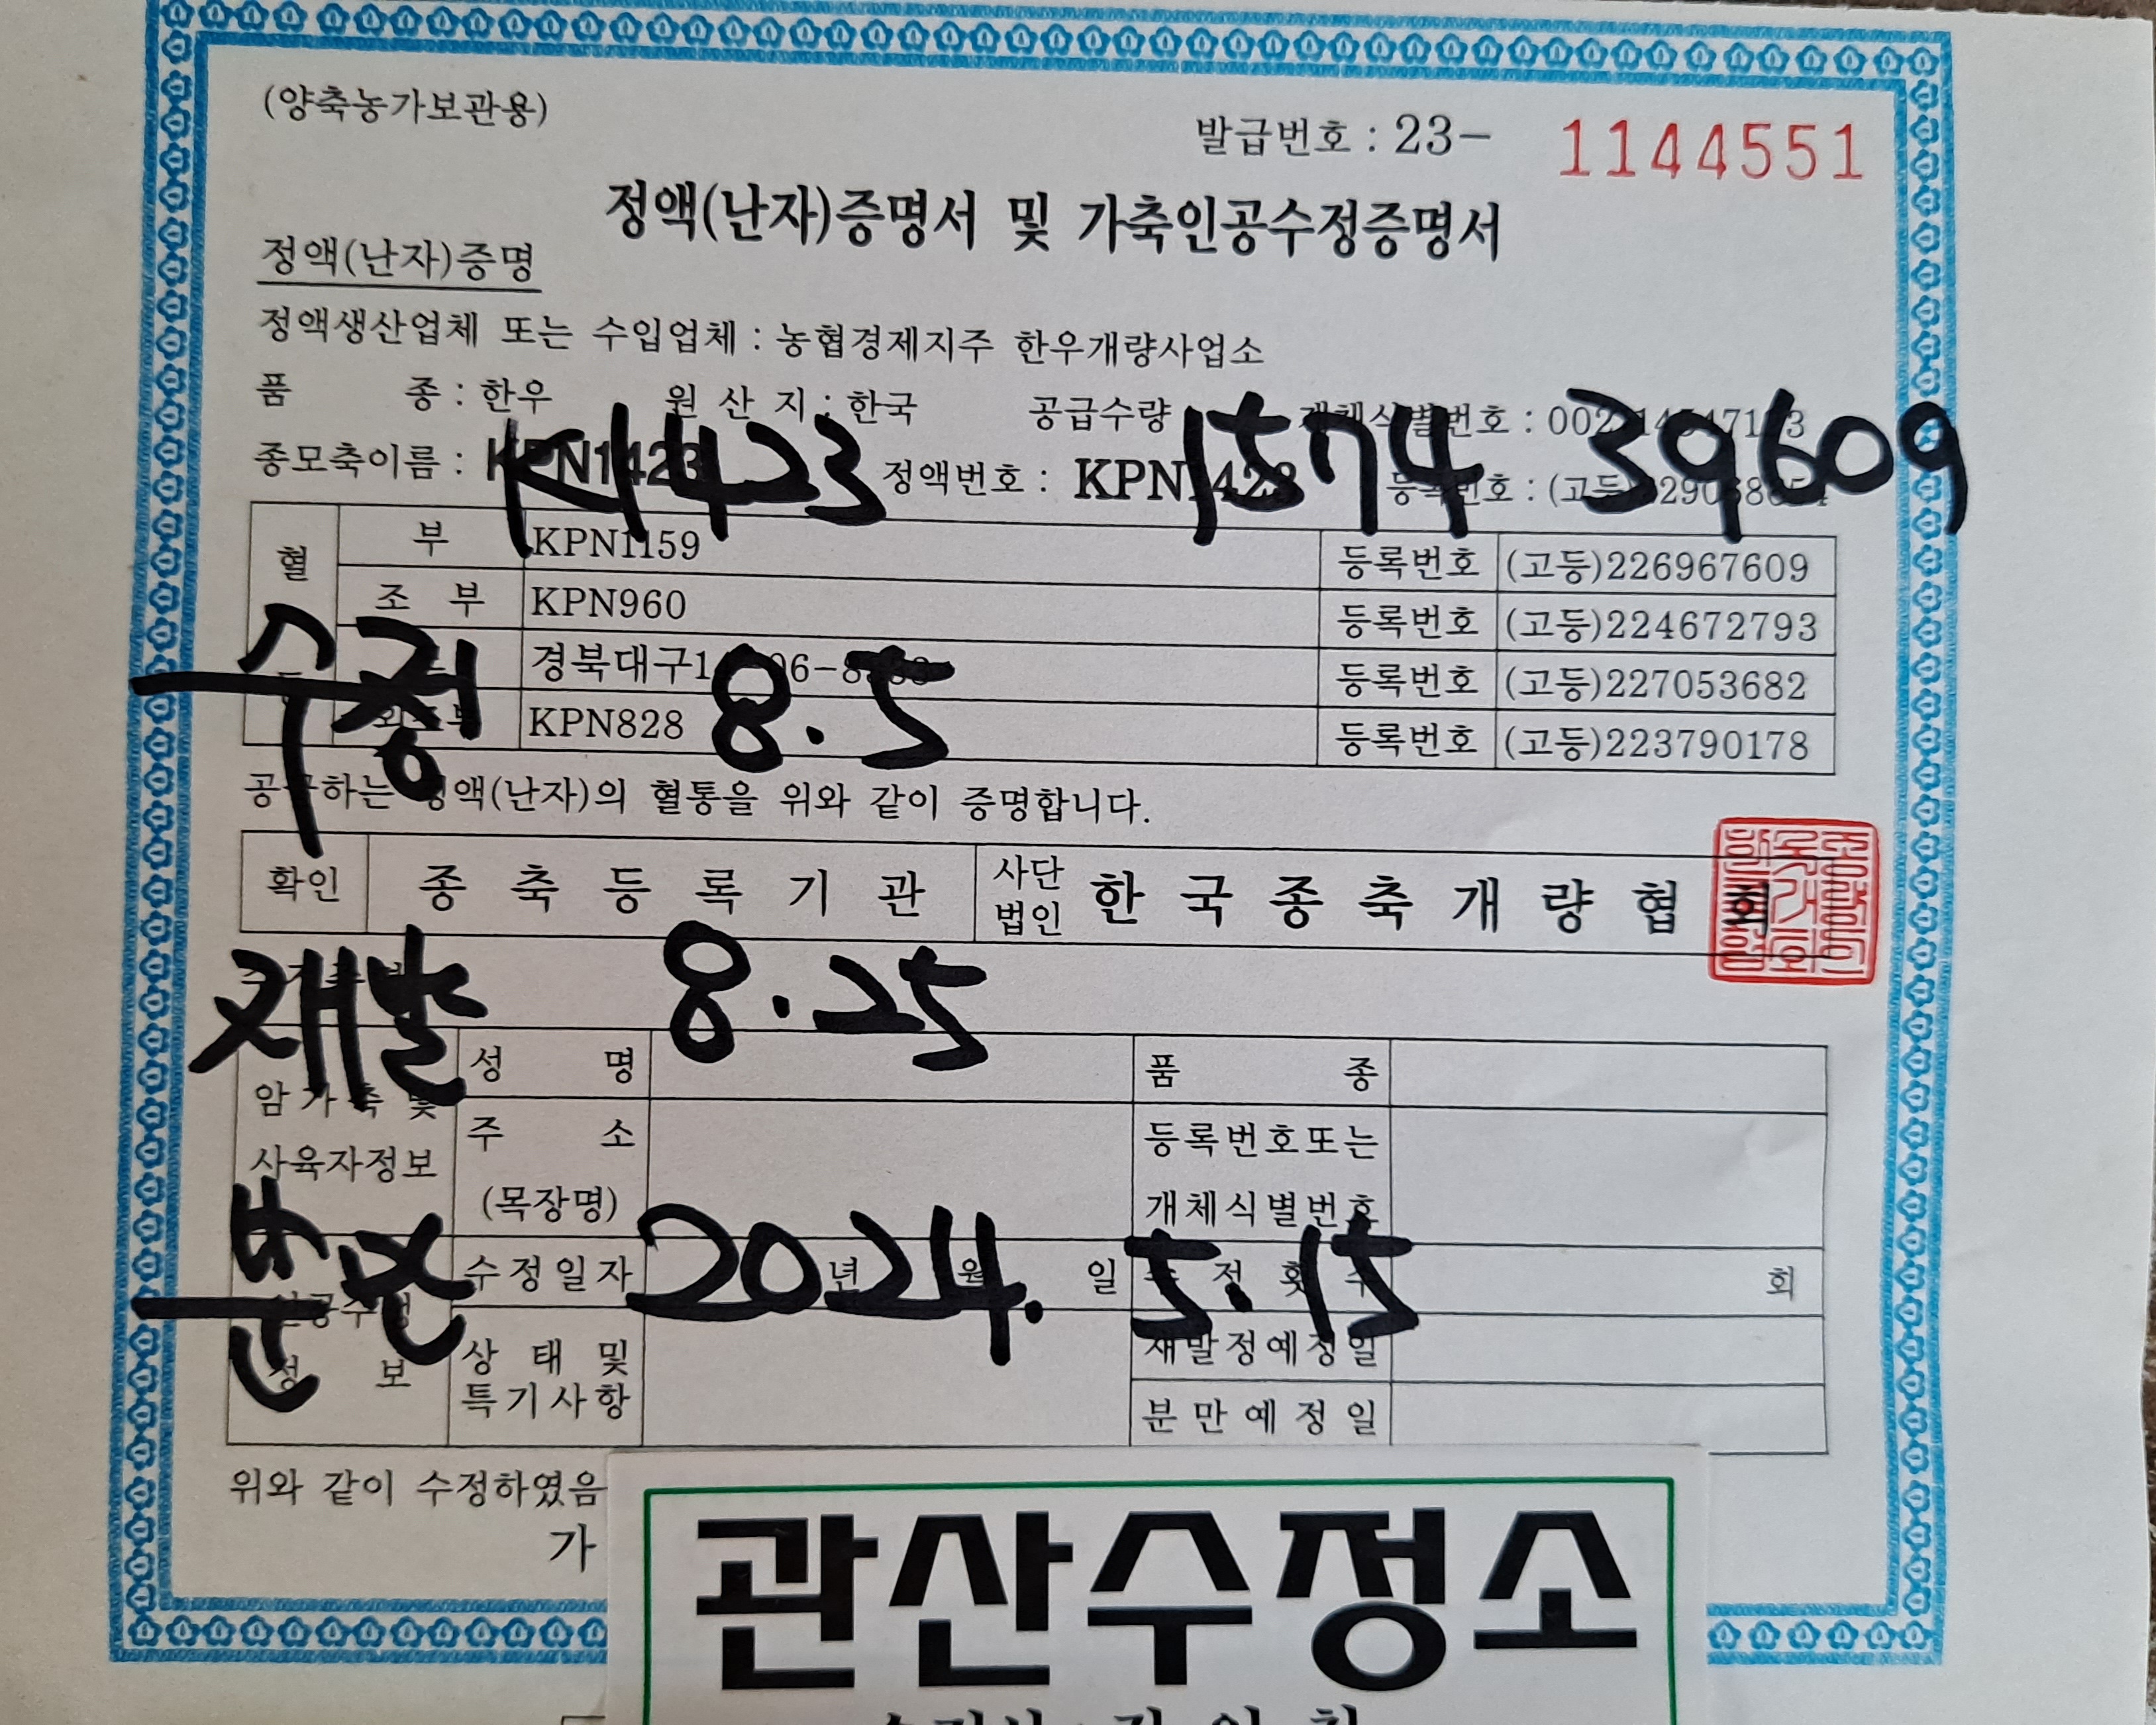 (양축농가보관용)
발급번호 : 23- 1144551
정액(난자)증명서 및 가축인공수정증명서
정액(난자)증명
정액생산업체 또는 수입업체 : 농협경제지주 한우개량사업소
품 종 : 한우 원 산 지 : 한국 공급수량 개체식별번호 :
종모축이름 : KPN1423 정액번호 : KPN1423 등록번호 :
K1423 1574 39609
혈
부 KPN1159 등록번호 (고등)226967609
조 부 KPN960 등록번호 (고등)224672793
경북대구 등록번호 (고등)227053682
외조부 KPN828 등록번호 (고등)223790178
수정 8.5
공급하는 정액(난자)의 혈통을 위와 같이 증명합니다.
확인 종 축 등 록 기 관 사단법인 한 국 종 축 개 량 협 회
재발 8.25
암 가 축 및 사육자정보
성 명 품 종
주 소 등록번호또는
(목장명) 개체식별번호
분만 2024. 5.15
인공수정 정 보
수정일자 년 월 일 수 정 횟 수 회
상 태 및 재발정예정일
특기사항 분 만 예 정 일
위와 같이 수정하였음
가
관산수정소